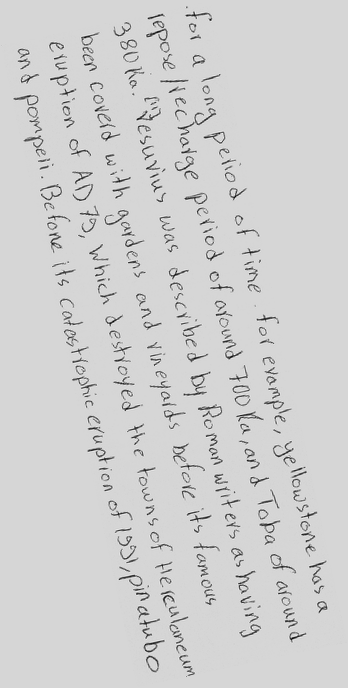 .for a long period of time. for example, yellowstone has a
repose/recharge period of around 700 Ka, and Toba of around
380 Ka. Vesuvius was described by Roman writers as having
been coverd with gardens and vineyards before its famous
eruption of AD 79, which destroyed the towns of Herculaneum
and pompeii. Before its catastrophic eruption of 1991, pinatubo